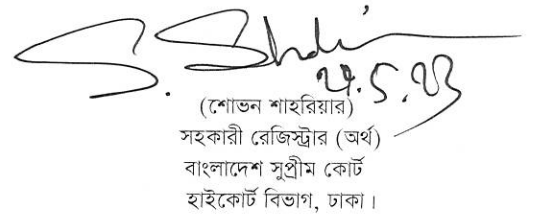 (শোভন শাহরিয়ার)
সহকারী রেজিস্ট্রার (অর্থ)
বাংলাদেশ সুপ্রীম কোর্ট
হাইকোর্ট বিভাগ, ঢাকা।